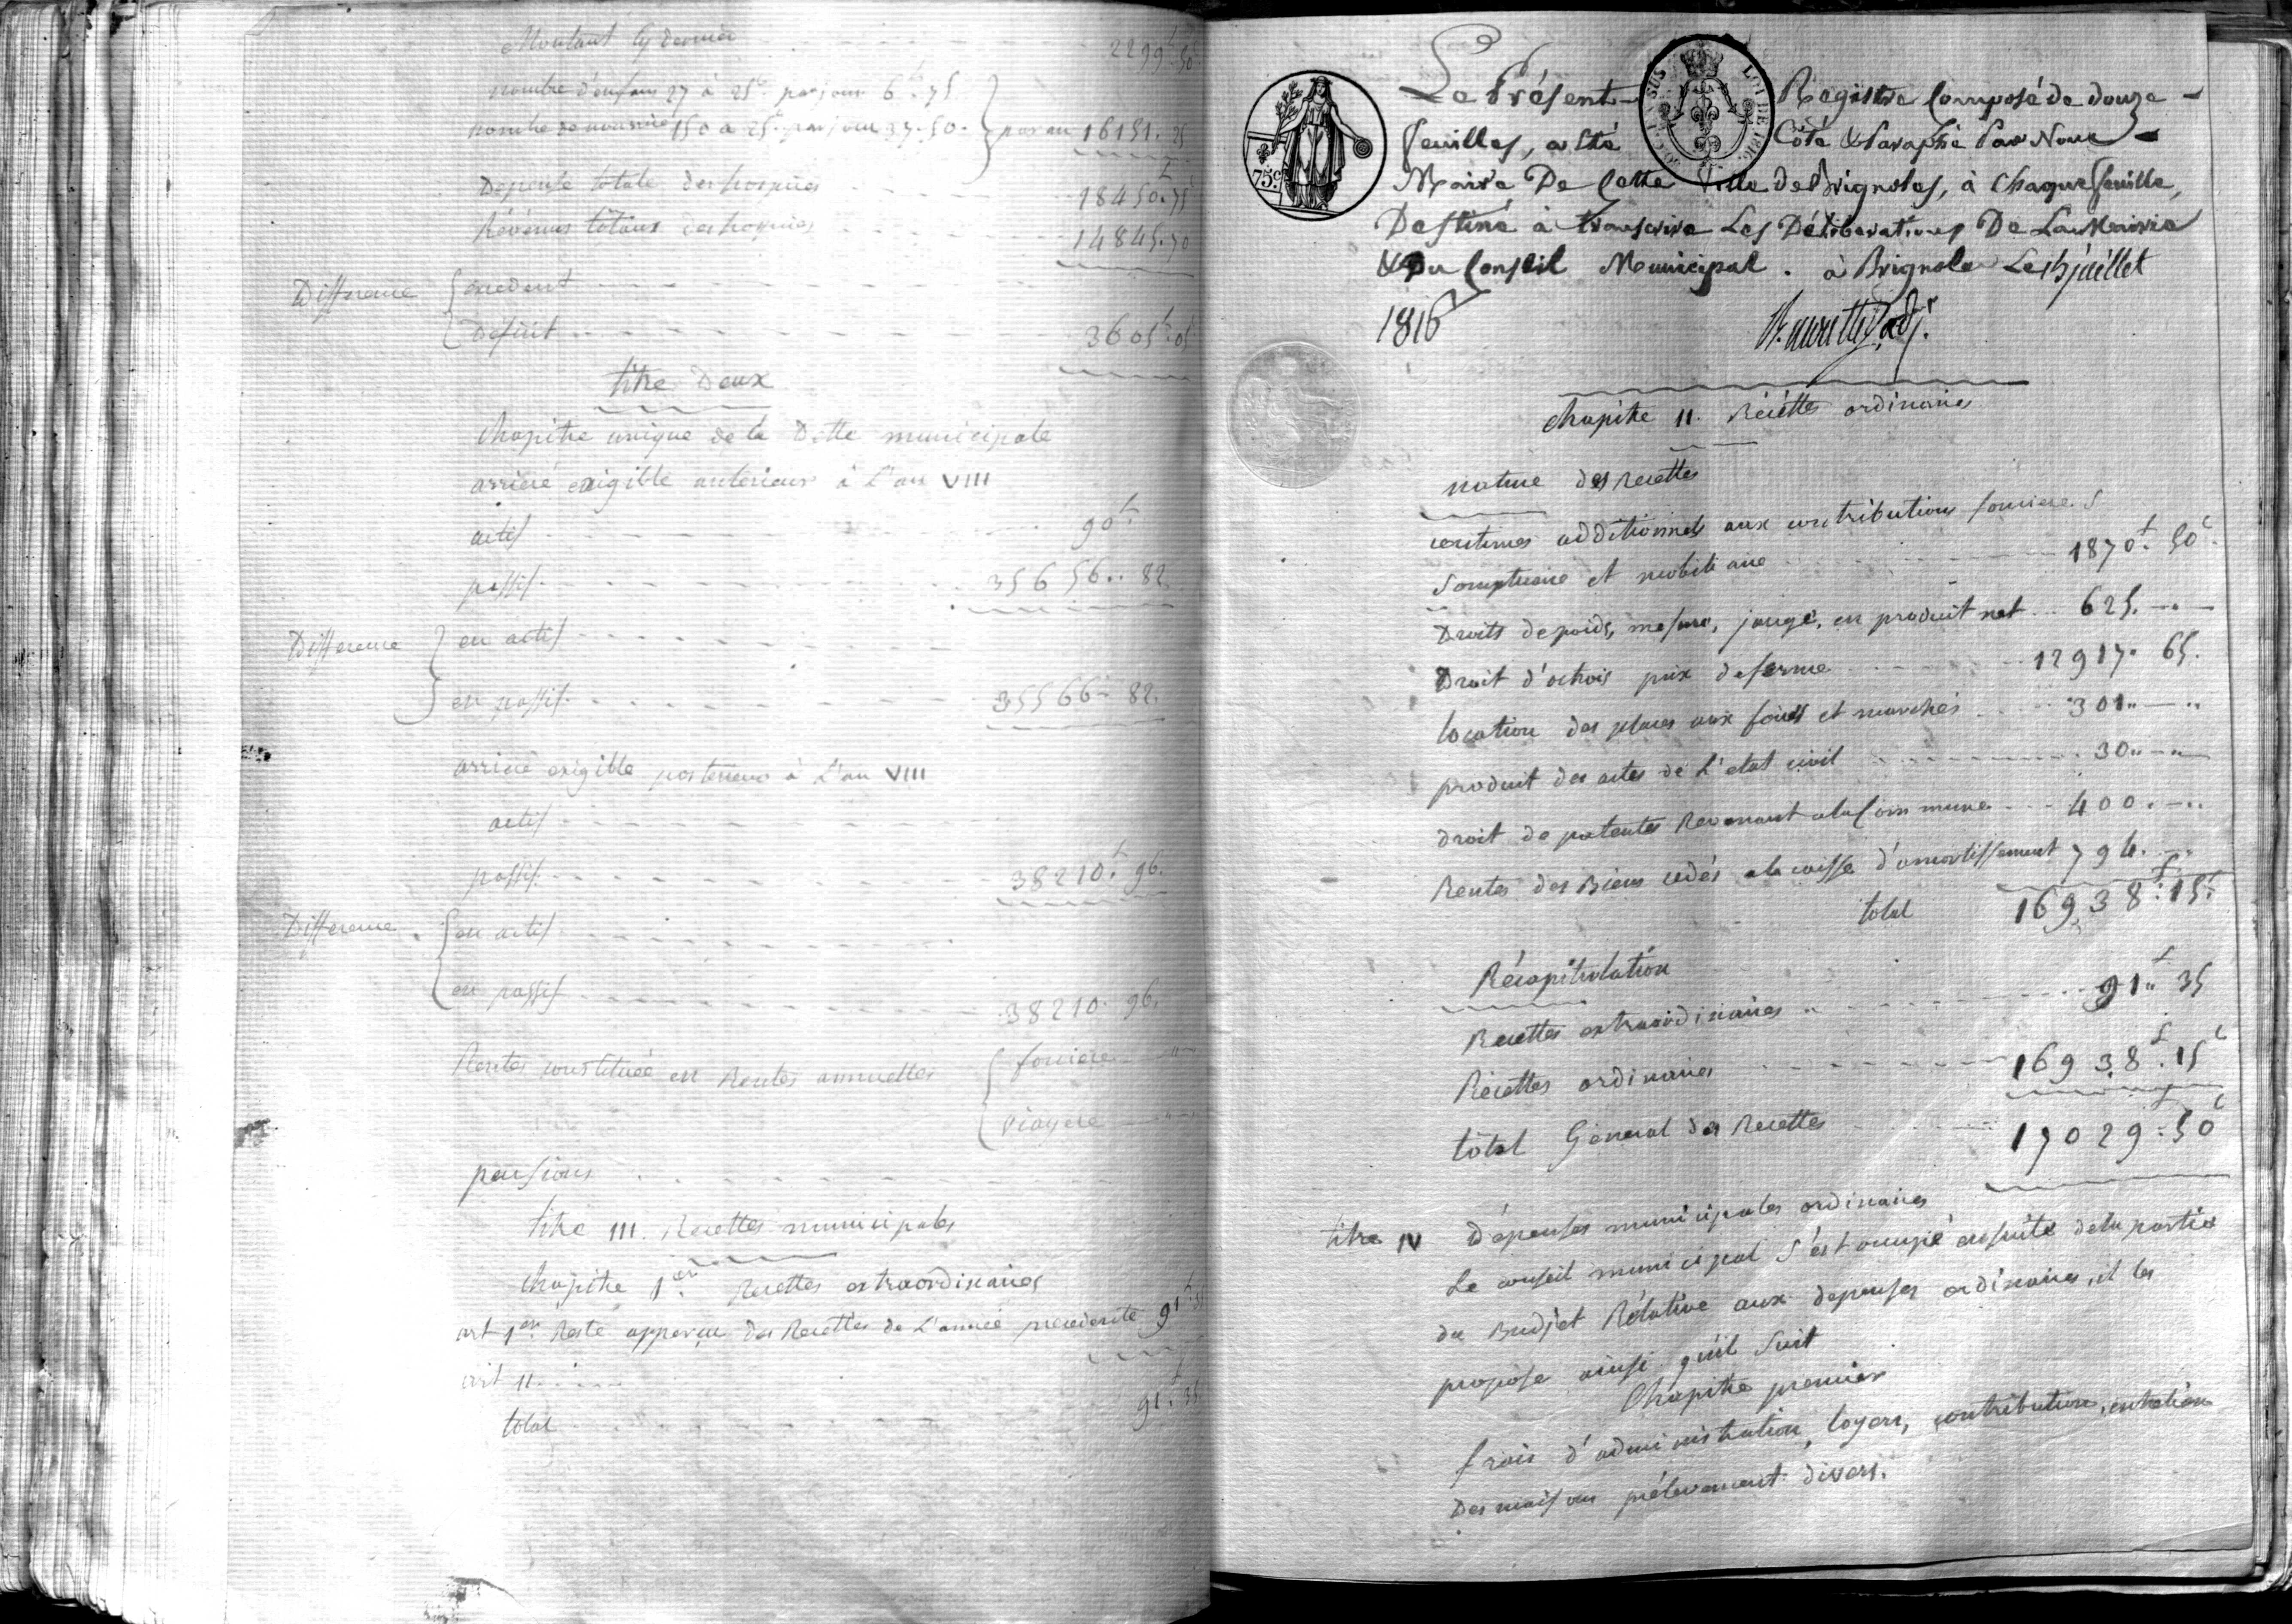 Montant cy dernier 2299.L 50c
nombre d'enfans 27 à 25c. par jour 6L. 75
nombre de nourrice 150 a 25c. par jour 37. 50. par an 16151. 25
Depense totale des hospices 18450.L 75
Révénus totaux des hospices 14845. 70
Difference excedent
Deficit 3605L. 05
titre Deux
Chapitre unique de la Dette municipale
arriéré exigible anterieur à L'an VIII
actif 90L.
passif 35656.. 82.
Difference en actif
en passif 35566 - 82.
arriéré exigible posterieur à L'an VIII
actif
passif 38210.L 96.
Difference en actif
en passif 38210. 96.
Rentes constituée en Rentes annuelles fonciere
viagere
pensions
titre III. Recettes municipales
Chapitre 1er. Recettes extraordinaires
art 1er. Reste apperçu des Recettes de L'année precedente 91L. 35
art II
total 91.L 35
Le Présent Registre Composé de douze
feuilles, a Eté Côté & Paraphé Par Nous
Maire De Cette Ville de Brignoles, à Chaque feuille,
Destiné à transcrire Les Déliberations De La Mairie
& Du Conseil Municipal. à Brignole Le 15 juillet
1816
75.c
LOI DE 1816.
adj.
Chapitre II. Récéttes ordinaires
nature des Recettes
centimes additionnels aux contributions fonciere S
Somptuaire et mobiliaire 1870L. 50c.
Droits de poids, mesure, jauge, en produit net 625.
Droit d'octrois prix de ferme 12917. 65.
location des places aux foires et marchés 301..
produit des actes de L'etat civil 30..
droit de patentes Revenant a la Commune 400.
Rentes des Biens cedés a la caisse d'amortissement 794.
total 16938L. 15c
Récapitulation
Recettes extraordinaires 91..L 35
Récettes ordinaires 16938.L 15c
total General des Recettes 17029L. 50c
titre IV Dépenses municipales ordinaires
Le conseil municipal S'est occupé ensuite de la partie
du Budjet Rélative aux depenses ordinaires, il les
propose ainsi qu'il Suit
Chapitre premier
frais d'administration, loyers, contribution, entretien
Des maisons prélevement divers.